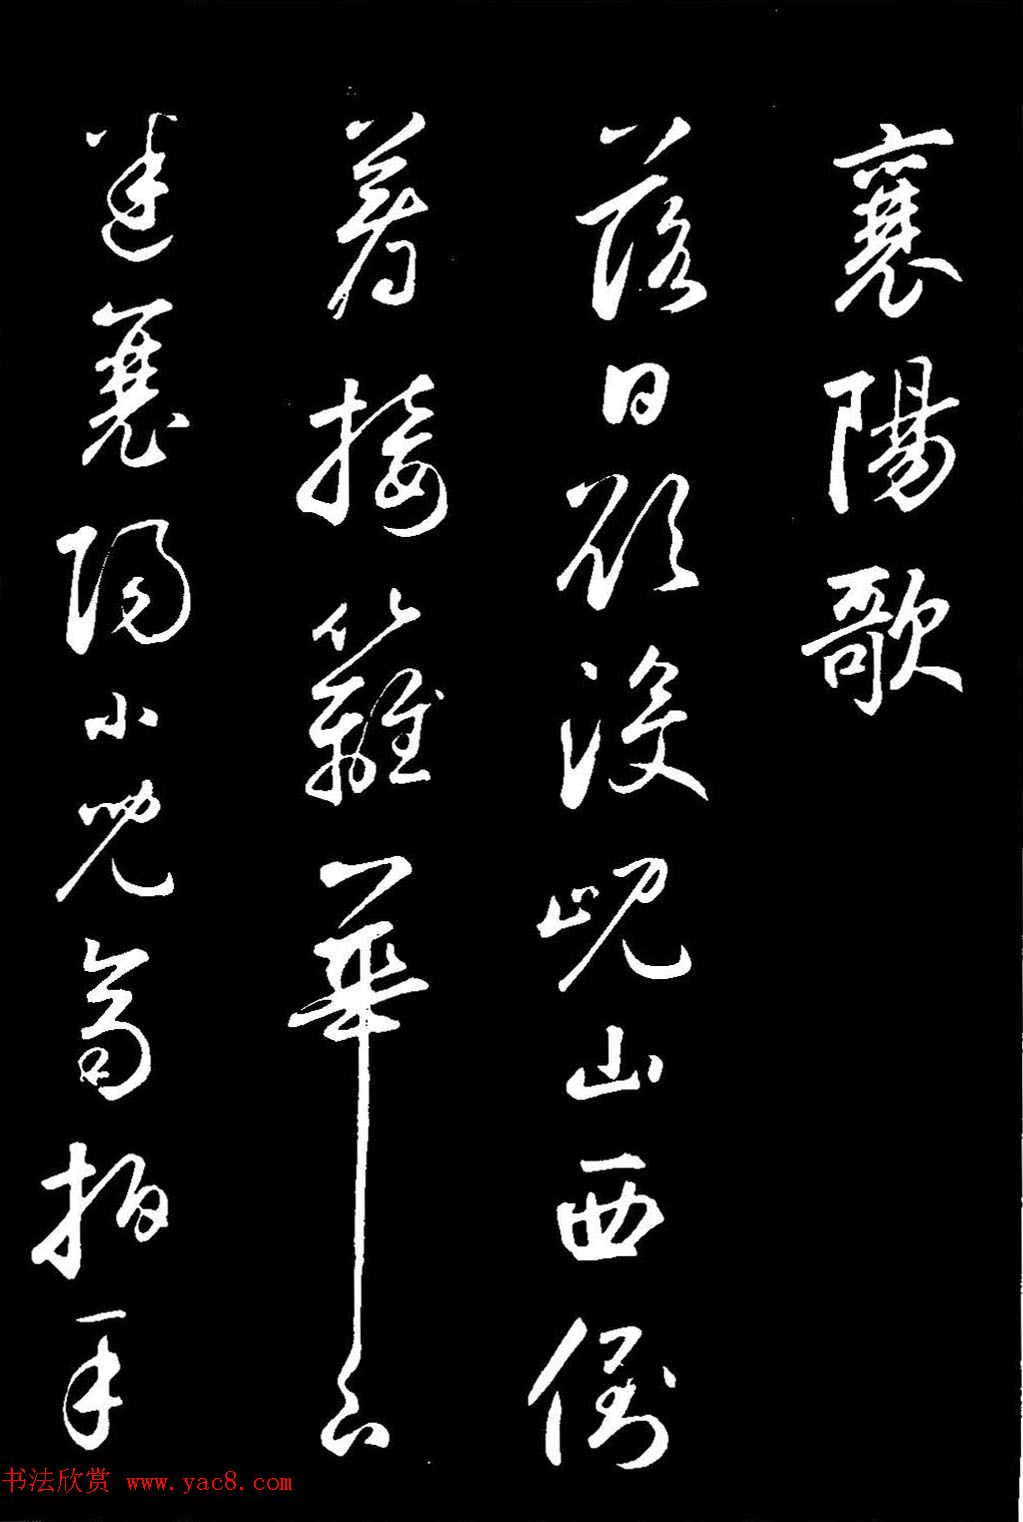 襄陽歌
落日欲没峴山西倒
着接籬華下
迷襄陽小児齊拍手
书法欣赏 www.yac8.com